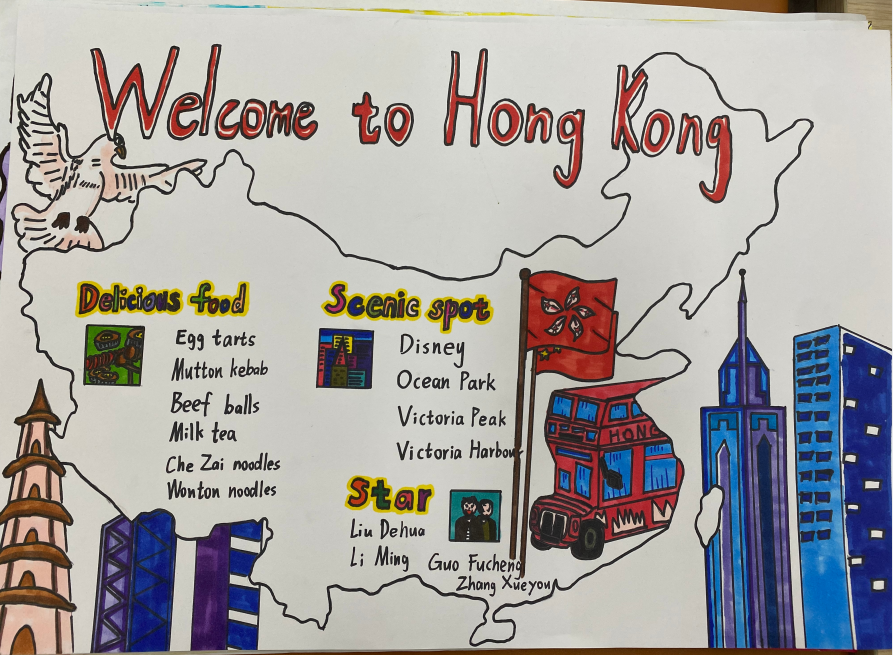 Welcome to Hong Kong
Delicious food
Egg tarts
Mutton kebab
Beef balls
Milk tea
Che Zai noodles
Wonton noodles
Scenic spot
Disney
Ocean Park
Victoria Peak
Victoria Harbour
HONG
Star
Liu Dehua
Li Ming
Guo Fucheng
Zhang Xueyou